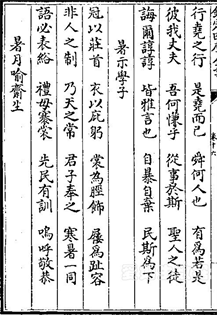 行堯之行 是堯而已 舜何人也 有為若是
彼我丈夫 吾何慊乎 從事於斯 聖人之徒
誨爾諄諄 皆雅言也 自暴自棄 民斯為下
暑示學子
冠以莊首 衣以庇躬 裳為脛飾 屨為趾容
非人之制 乃天之常 君子奉之 寒暑一同
語必表綌 禮毋褰裳 先民有訓 嗚呼敬恭
暑月喻齋生